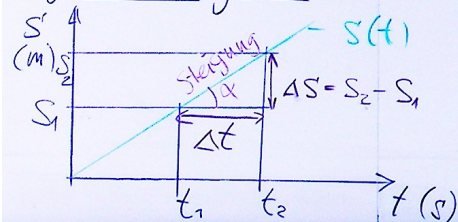 S
(m)
S2
S1
Steigung
α
S(t)
ΔS = S2 - S1
Δt
t1
t2
t (s)